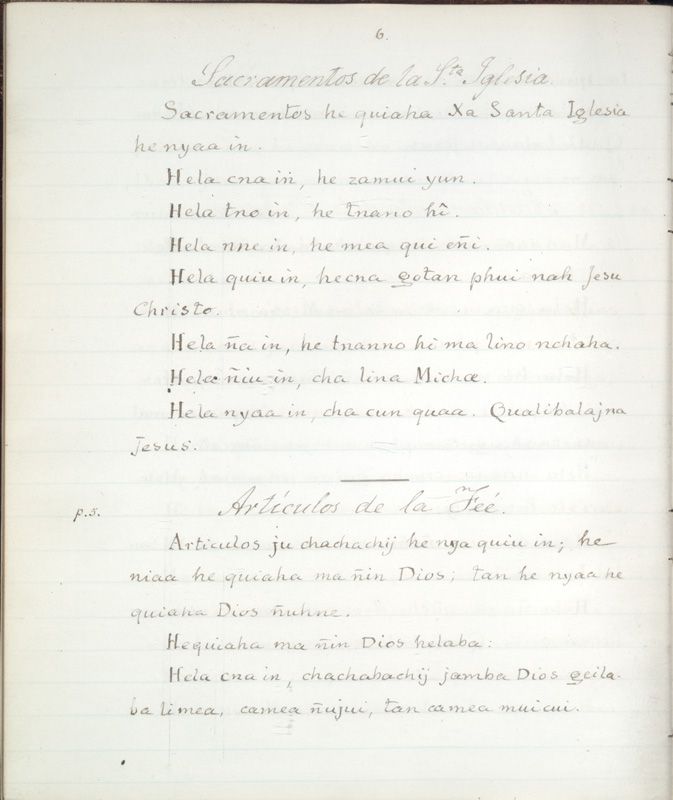 6.
Sacramentos de la S.ta Iglesia.
Sacramentos he quiaha Xa Santa Iglesia
he nyaa in.
Hela cna in, he zamui yun.
Hela tno in, he tnano hî.
Hela nne in, he mea qui eñi.
Hela quiu in, hecna gotan phui nah Jesu
Christo.
Hela ña in, he tnanno hi ma lino nchaha.
Hela ñiu in, cha lina Michæ.
Hela nyaa in, cha cun quaa. Qualibalajna
Jesus.
p.5. Artículos de la Feé.
Articulos ju chachachij he nya quiu in; he
niaa he quiaha ma ñin Dios; tan he nyaa he
quiaha Dios ñuhne.
Hequiaha ma ñin Dios helaba:
Hela cna in, chachabachij jamba Dios geila-
ba limea, camea ñujui, tan camea muicui.